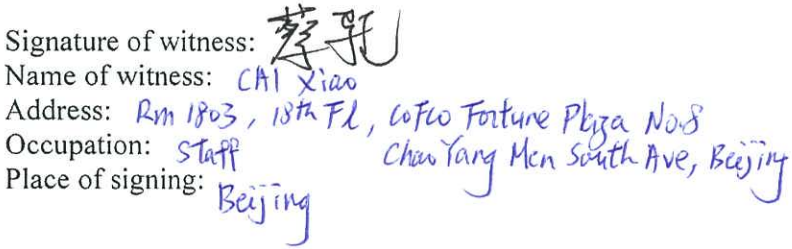 Signature of witness: 蔡
Name of witness: CAI Xiao
Address: Rm 1803, 18th Fl, COFCO Fortune Plaza No.8
Chao Yang Men South Ave, Beijing
Occupation: Staff
Place of signing: Beijing